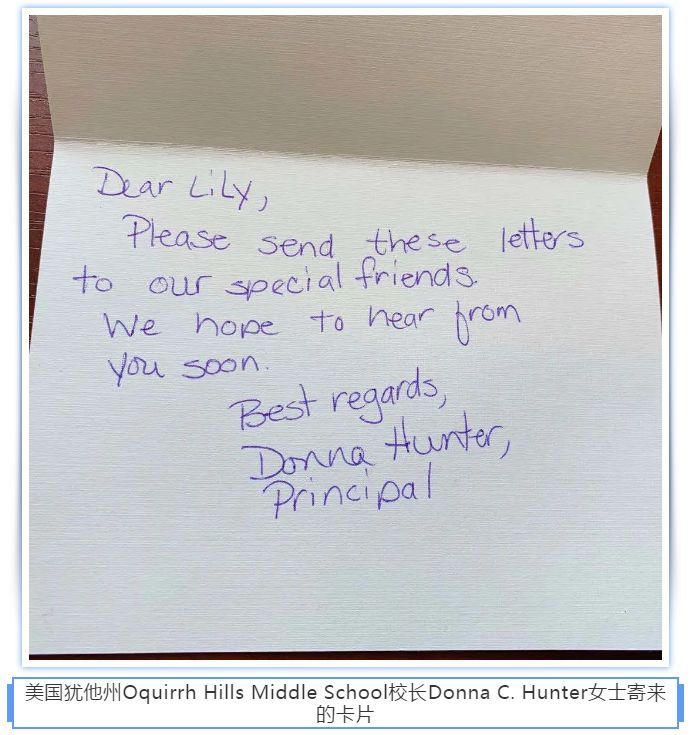 Dear Lily,
Please send these letters
to our special friends.
We hope to hear from
you soon.
Best regards,
Donna Hunter,
Principal
美国犹他州Oquirrh Hills Middle School校长Donna C. Hunter女士寄来
的卡片